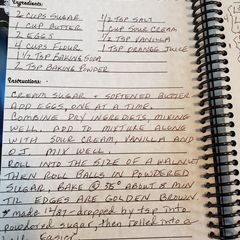 Ingredients:
2 CUPS SUGAR 1/2 TSP SALT
1 CUP BUTTER 1 CUP SOUR CREAM
2 EGGS 1/2 TSP VANILLA
4 CUPS FLOUR 1 TSP ORANGE JUICE
1 1/2 TSP BAKING SODA
2 TSP BAKING POWDER
Instructions:
CREAM SUGAR + SOFTENED BUTTER
ADD EGGS, ONE AT A TIME.
COMBINE DRY INGREDIETS, MIXING
WELL. ADD TO MIXTURE ALONG
WITH SOUR CREAM, VANILLA AND
O.J. MIX WELL!
ROLL INTO THE SIZE OF A WALNUT
THEN ROLL BALLS IN POWDERED
SUGAR, BAKE @ ABOUT 8 MIN
TIL EDGES ARE GOLDEN BROWN.
made dropped by tsp into
powdered sugar, then rolled into a
Easier